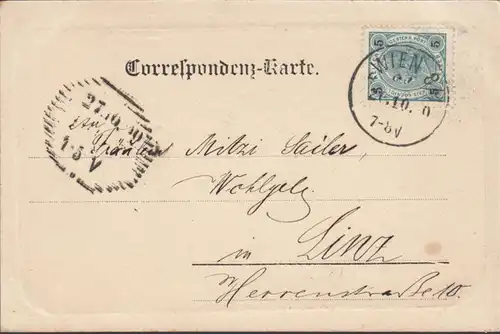 Correspondenz-Karte.
5 5
WIEN
.10. 0
7-8V
27.10.00
1-3 V
An
Fräulein Mitzi Sailer
Wohlgeb.
in Linz
Herrenstraße 10.